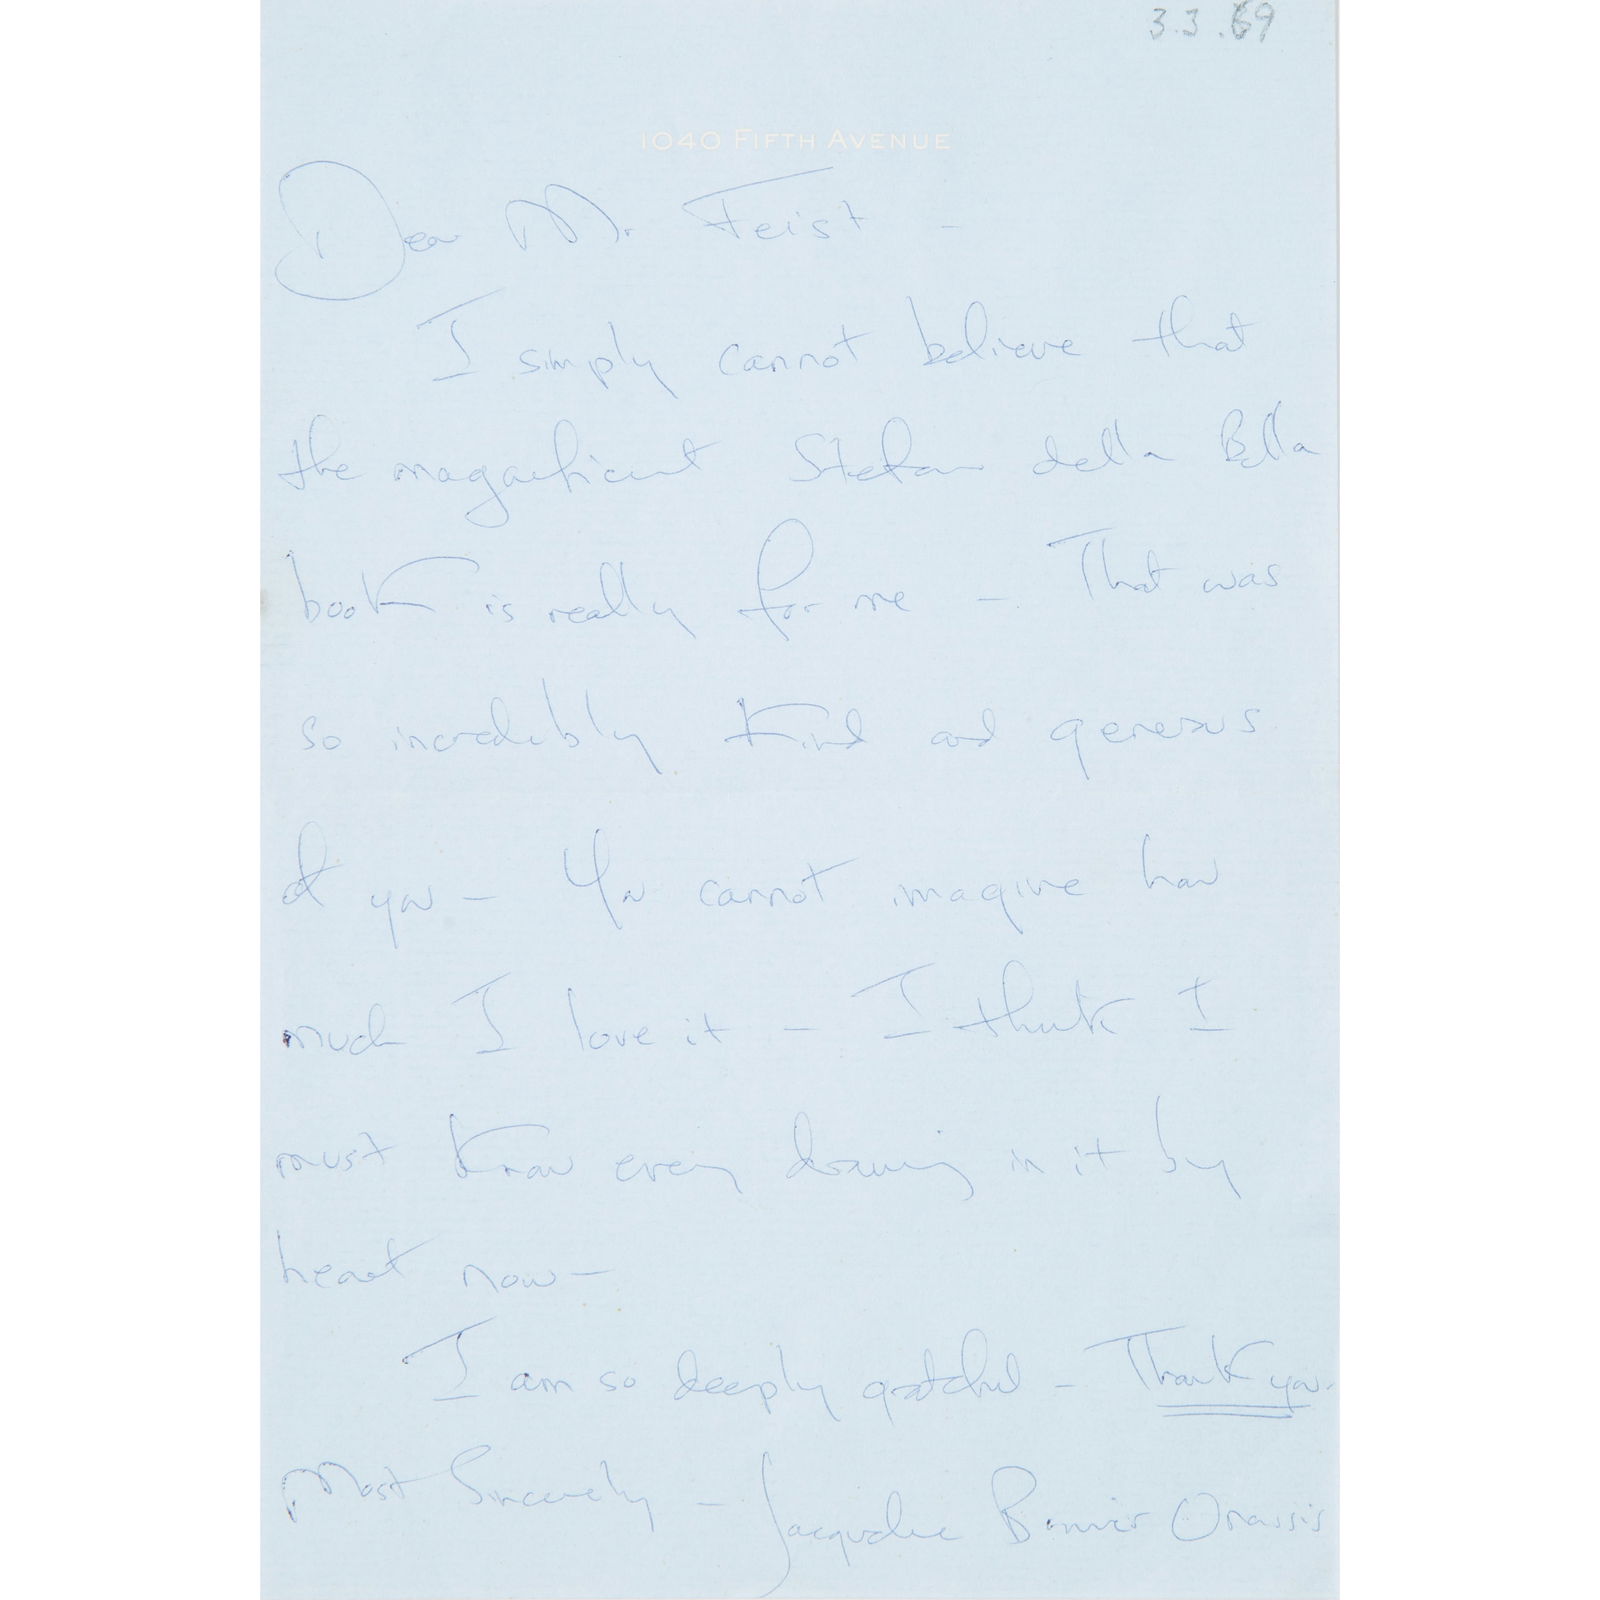 3.3.69
1040 FIFTH AVENUE
Dear Mr Feist -
I simply cannot believe that
the magnificent Stefano della Bella
book is really for me - That was
so incredibly kind and generous
of you - You cannot imagine how
much I love it - I think I
must know every drawing in it by
heart now -
I am so deeply grateful - Thank you.
Most Sincerely - Jacqueline Bouvier Onassis